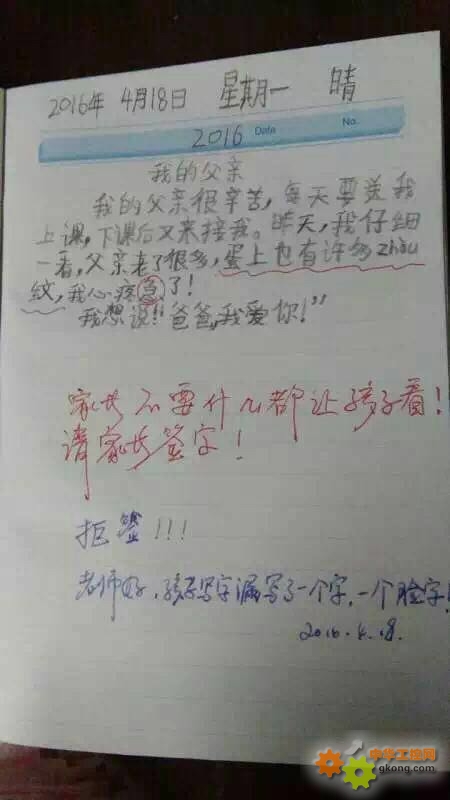 2016年 4月18日 星期一 晴
2016 Date No.
我的父亲
我的父亲很辛苦，每天要送我
上课，下课后又来接我。昨天，我仔细
一看，父亲老了很多，蛋上也有许多zhòu
纹，我心疼急了！
我想说！“爸爸，我爱你！”
家长不要什么都让孩子看！
请家长签字！
拒签！！！
老师好，孩子写字漏写了一个字，一个脸字！
2016.4.18.
中华工控网
gkong.com